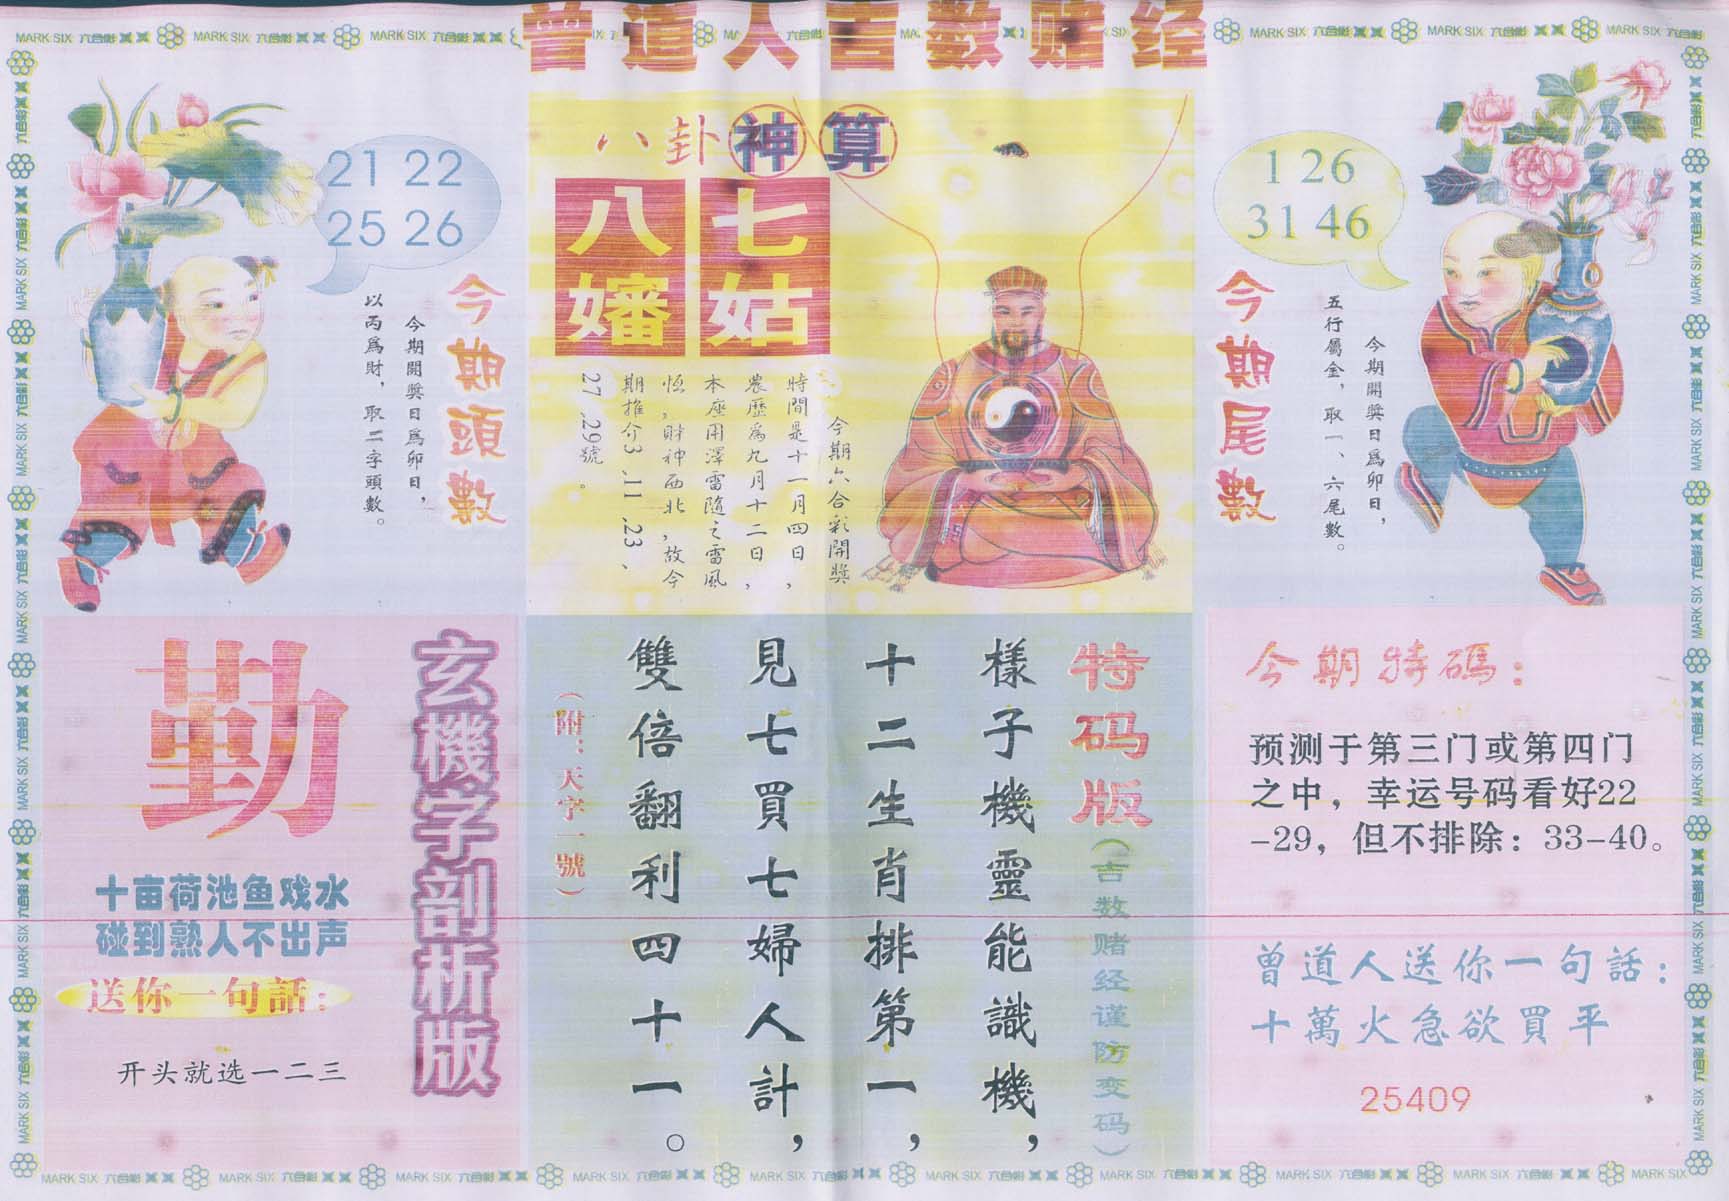 曾道人吉数赌经
八卦神算
七姑
八嬸
今期六合彩開獎
時間是十一月四日，
農歷為九月十二日，
本座用澤雷隨之雷風
恆，財神西北，故今
期推介3.11.23、
27.29號。
21 22
25 26
今期頭數
今期開獎日為卯日，
以丙為財，取二字頭數。
1 26
31 46
今期尾數
今期開獎日為卯日，
五行屬金，取一、六尾數。
玄機字剖析版
勤
十亩荷池鱼戏水
碰到熟人不出声
送你一句話：
开头就选一二三
特码版（吉数赌经谨防变码）
樣子機靈能識機，
十二生肖排第一，
見七買七婦人計，
雙倍翻利四十一。
（附：天字一號）
今期特碼：
预测于第三门或第四门
之中，幸运号码看好22
-29，但不排除：33-40。
曾道人送你一句話：
十萬火急欲買平
25409
MARK SIX 六合彩